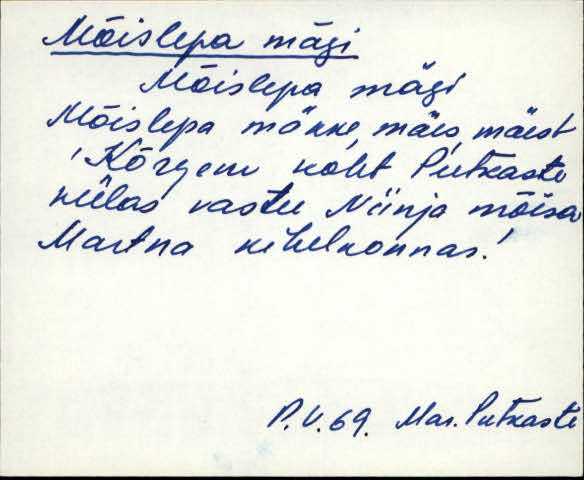 Mõislepa mägi
Mõislepa mägi
Mõislepa mäkke, mäes, mäest
'Kõrgem koht Putkaste
külas vastu Niinja mõisa
Martna kihelkonnas.'
P.V.69. Mar. Putkaste